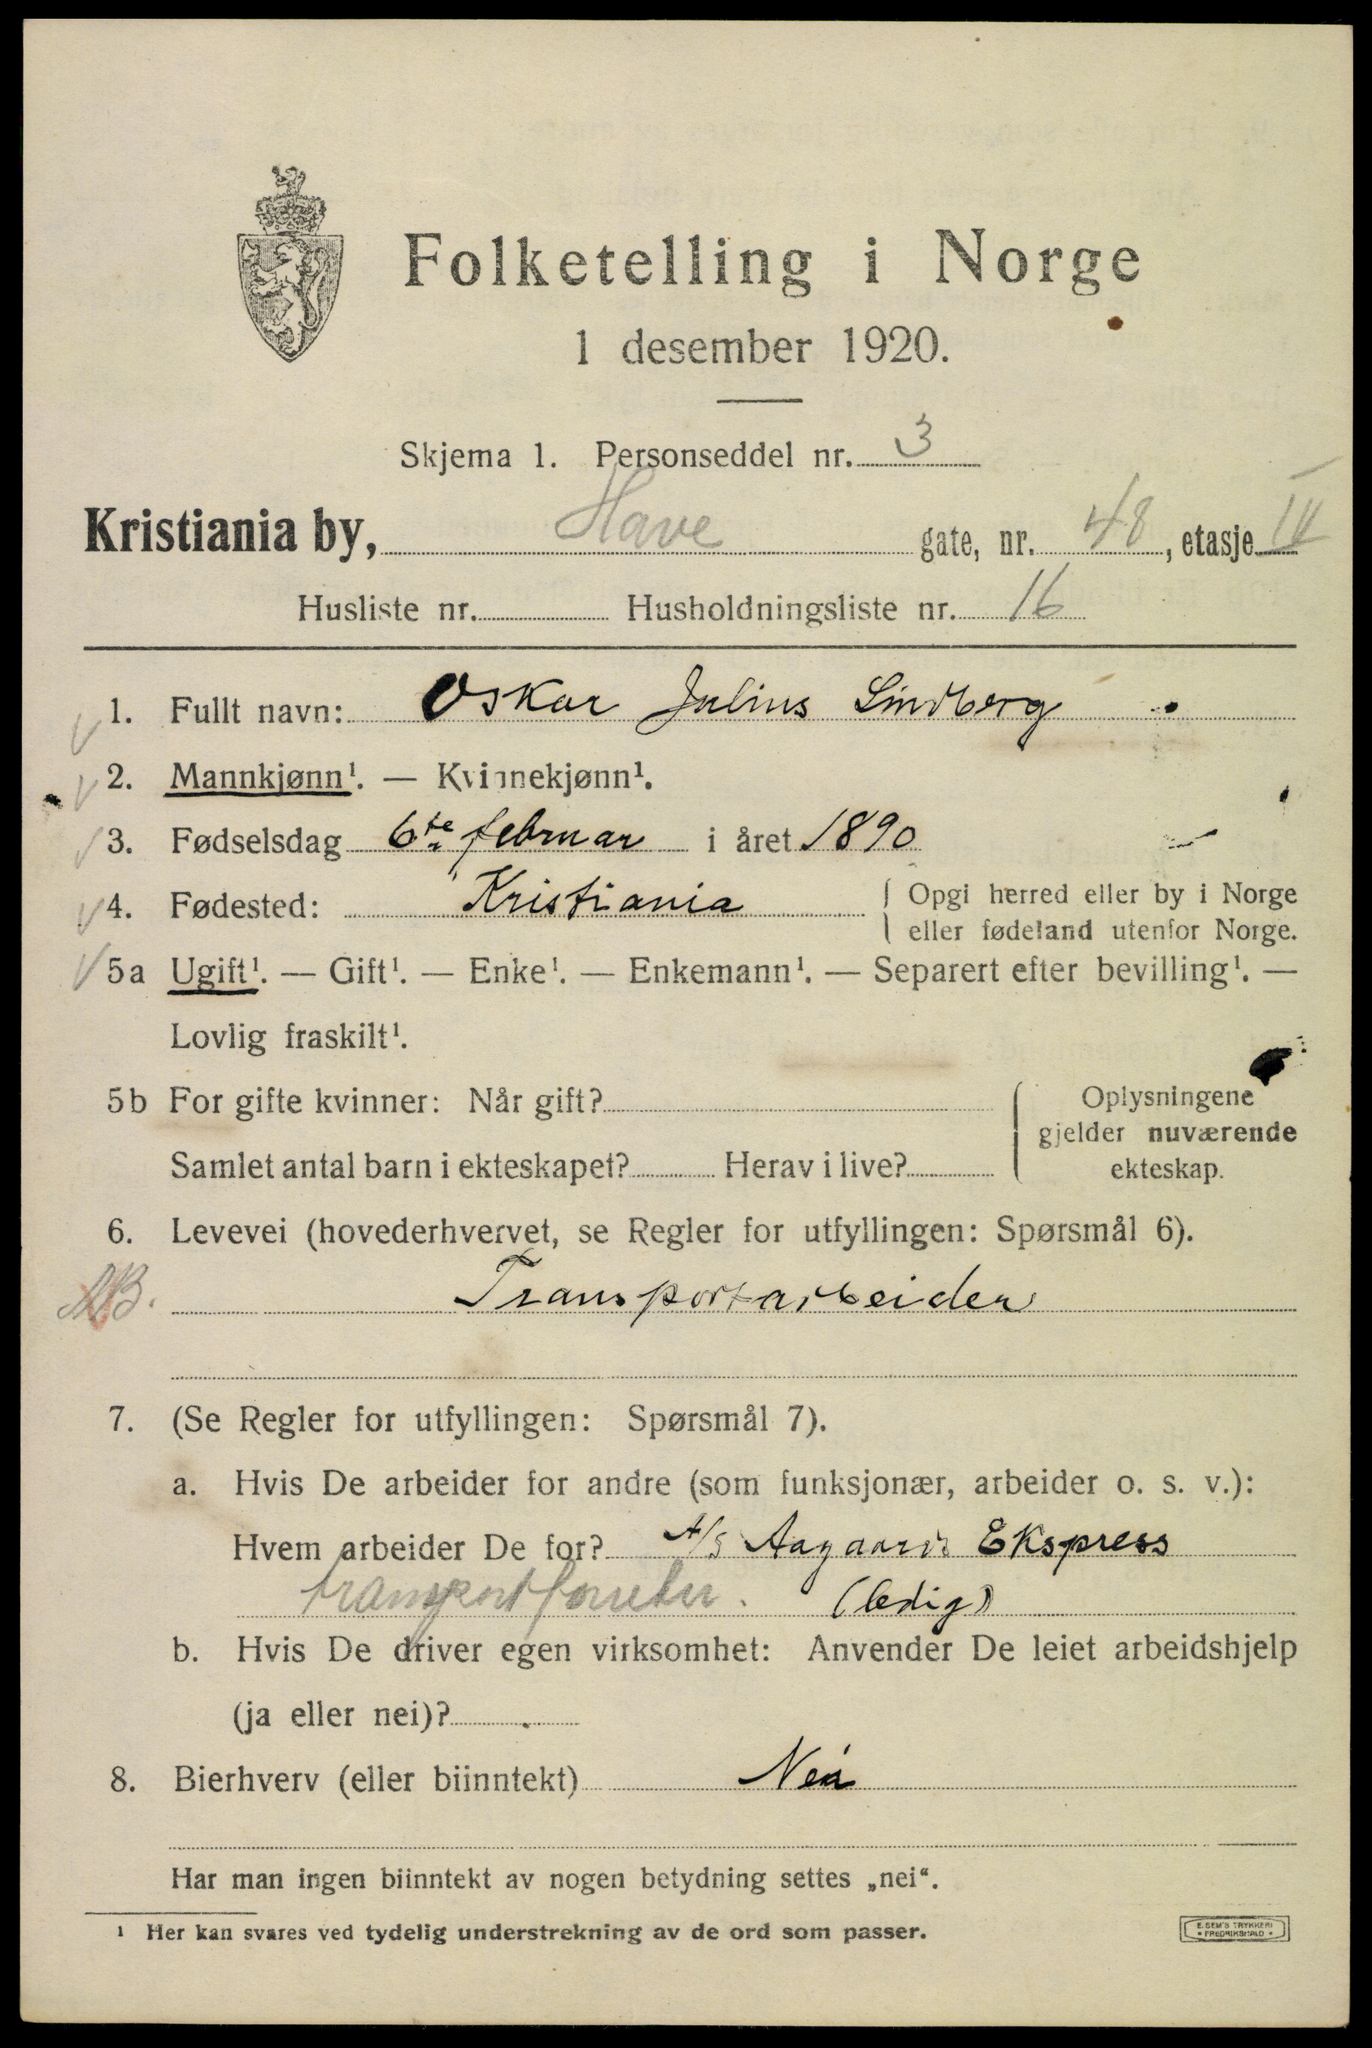 Folketelling i Norge
1 desember 1920.
Skjema 1. Personseddel nr. 3
Kristiania by, Have gate, nr. 48, etasje IV
Husliste nr. Husholdningsliste nr. 16
1. Fullt navn: Oskar Julius Lindberg
2. Mannkjønn¹. — Kvinnekjønn¹.
3. Fødselsdag 6te februar i året 1890
4. Fødested: Kristiania { Opgi herred eller by i Norge
eller fødeland utenfor Norge.
5a Ugift¹. — Gift¹. — Enke¹. — Enkemann¹. — Separert efter bevilling¹. —
Lovlig fraskilt¹.
5b For gifte kvinner: Når gift? { Oplysningene
gjelder nuværende
Samlet antal barn i ekteskapet? Herav i live? ekteskap.
6. Levevei (hovederhvervet, se Regler for utfyllingen: Spørsmål 6).
AB. Transportarbeider
7. (Se Regler for utfyllingen: Spørsmål 7).
a. Hvis De arbeider for andre (som funksjonær, arbeider o. s. v.):
Hvem arbeider De for? A/S Aagaards Ekspress
transportforretn. (ledig)
b. Hvis De driver egen virksomhet: Anvender De leiet arbeidshjelp
(ja eller nei)?
8. Bierhverv (eller biinntekt) Nei
Har man ingen biinntekt av nogen betydning settes „nei“.
¹ Her kan svares ved tydelig understrekning av de ord som passer.
E. SEM'S TRYKKERI
* FREDRIKSHALD *